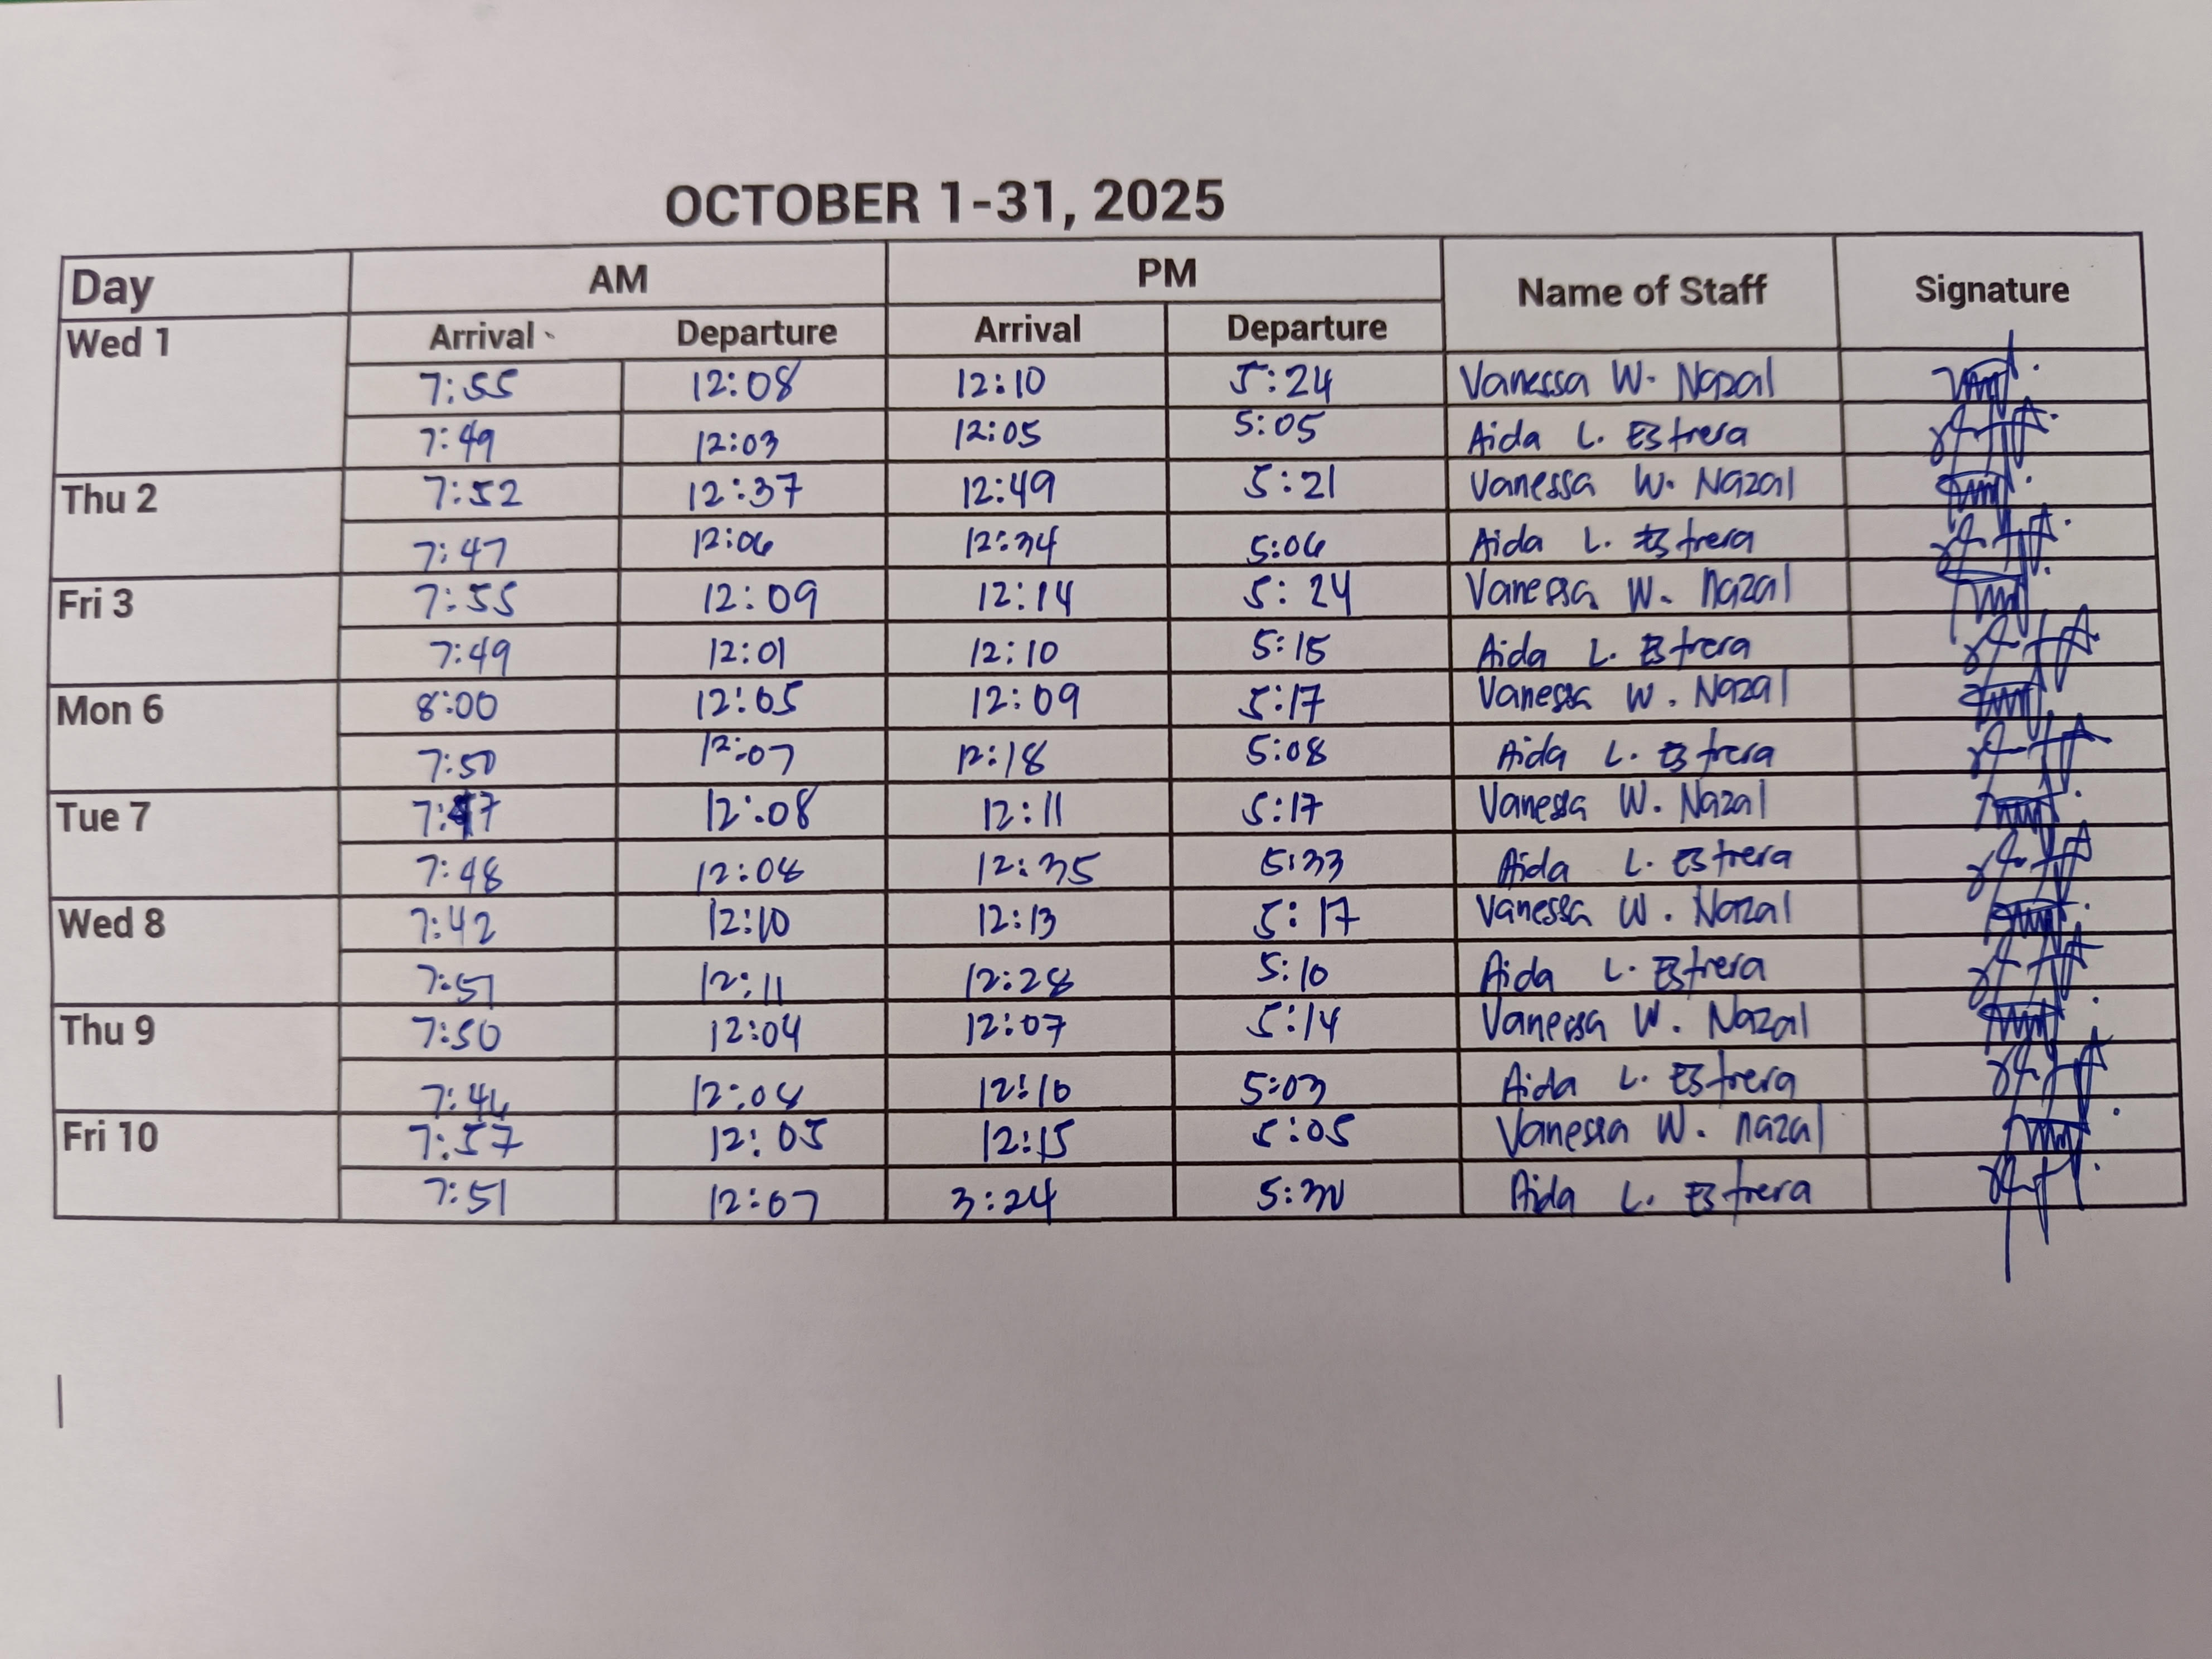 OCTOBER 1-31, 2025
Day AM PM Name of Staff Signature
Arrival Departure Arrival Departure
Wed 1
7:55 12:08 12:10 5:24 Vanessa W. Nazal
7:49 12:03 12:05 5:05 Aida L. Estrera
Thu 2 7:52 12:37 12:49 5:21 Vanessa W. Nazal
7:47 12:06 12:34 5:06 Aida L. Estrera
Fri 3 7:55 12:09 12:14 5:24 Vanessa W. Nazal
7:49 12:01 12:10 5:15 Aida L. Estrera
Mon 6 8:00 12:05 12:09 5:17 Vanessa W. Nazal
7:50 12:07 12:18 5:08 Aida L. Estrera
Tue 7 12:08 12:11 5:17 Vanessa W. Nazal
7:48 12:08 12:35 5:33 Aida L. Estrera
Wed 8 7:42 12:10 12:13 5:17 Vanessa W. Nazal
7:51 12:11 12:28 5:10 Aida L. Estrera
Thu 9 7:50 12:04 12:07 5:14 Vanessa W. Nazal
12:08 12:10 5:03 Aida L. Estrera
Fri 10 7:57 12:05 12:15 5:05 Vanessa W. Nazal
7:51 12:07 3:24 5:30 Aida L. Estrera